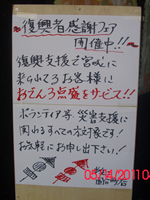 復興者感謝フェア
開催中!!
復興支援で宮城に
来られてるお客様に
おでん3点盛をサービス!!
ボランティア等、災害支援に
関わるすべての方対象です!
お気軽にお申し出下さい!
05/14/2011